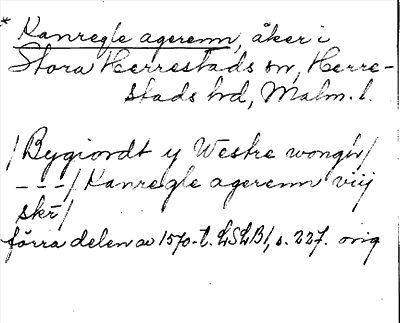 * Kanregle agerenn, åker i
Stora Herrestads sn, Herre-
stads hd, Malm. l.
/Bygiordt y Westre wongh/
---/Kanregle agerenn viij
skr̄/
förra delen av 1570-t. LSLB1, s. 227. orig